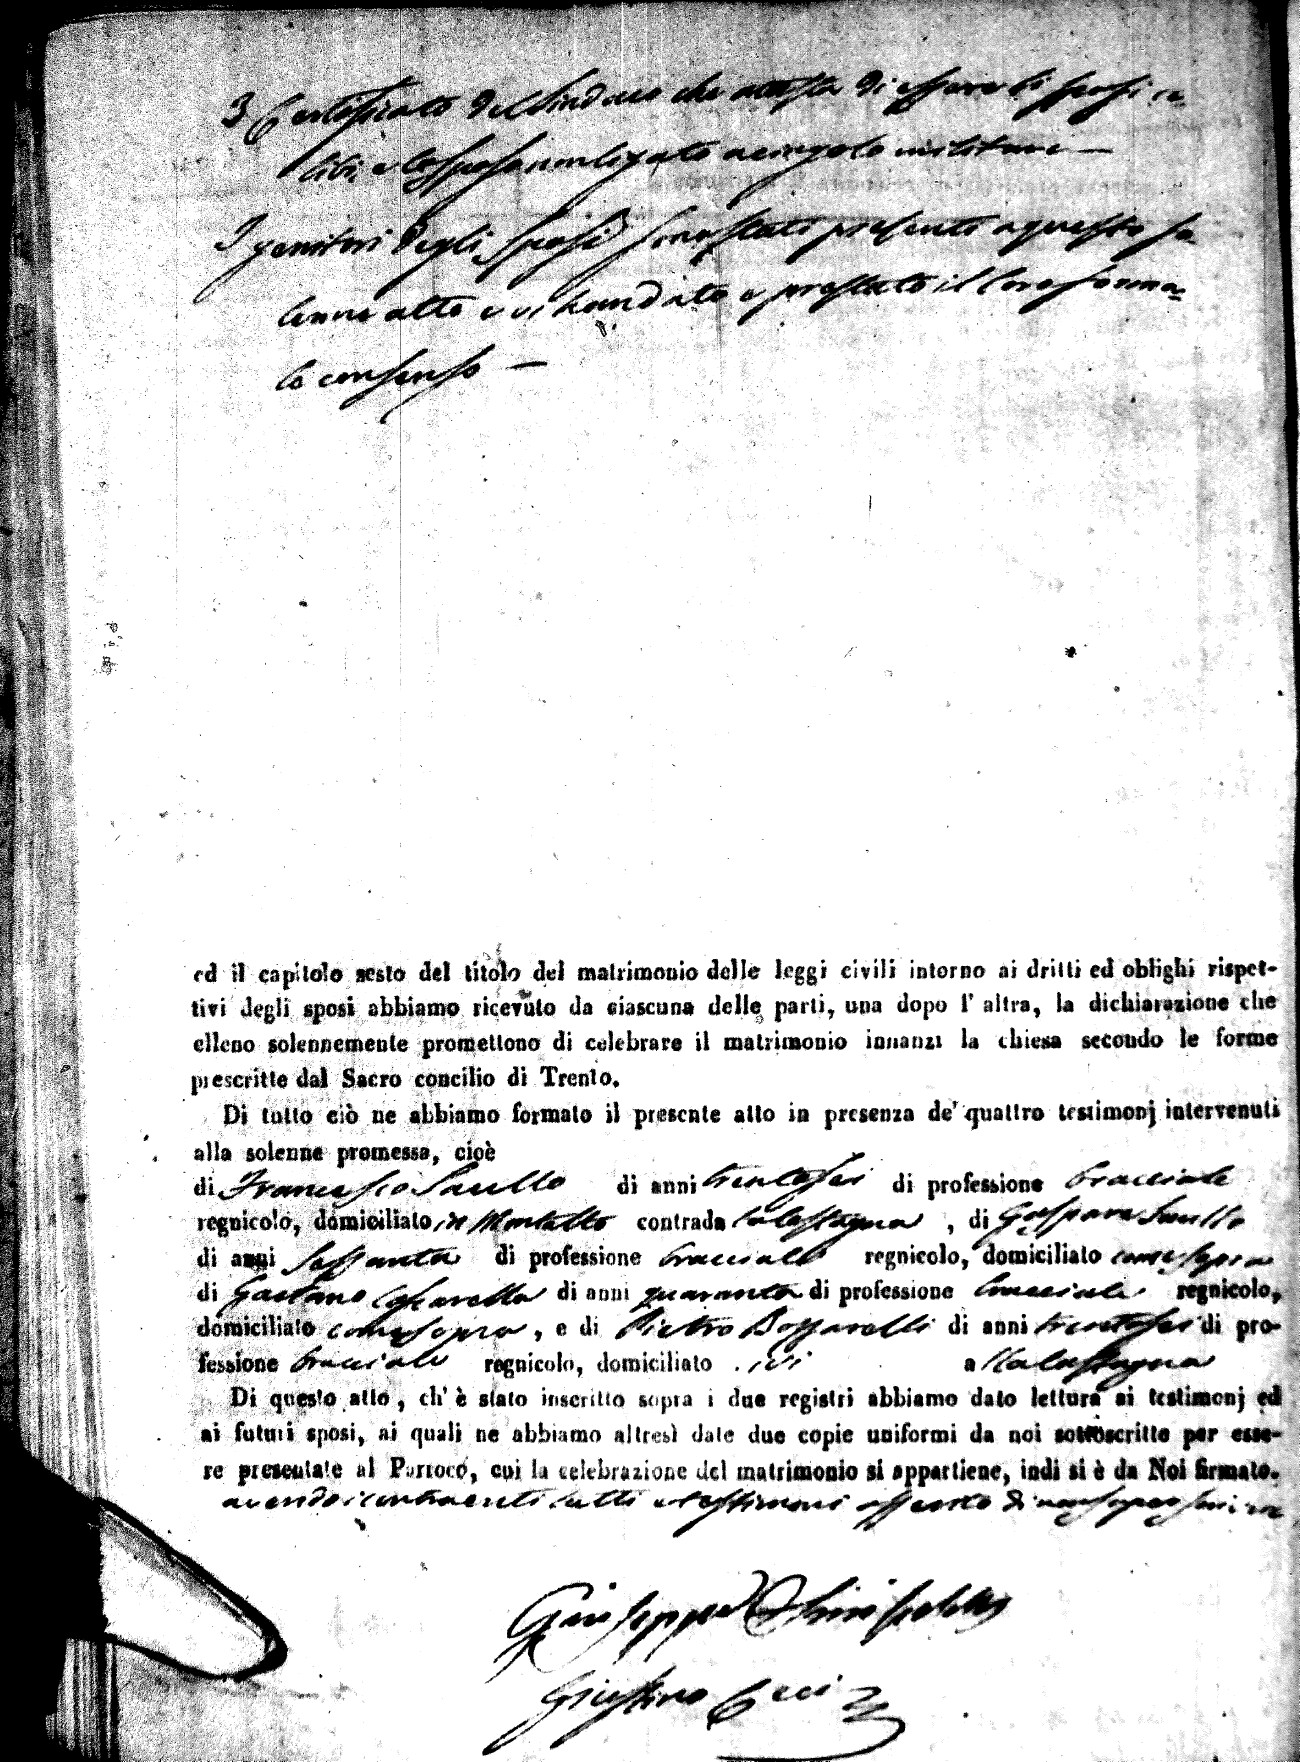 3 Certificato del Sindaco che attesta di essere li sposi ce=
libi, e lo sposo non ligato a cingolo militare —
I genitori degli sposi sono stati presenti a questo so=
lenne atto e vi hanno dato e prestato il loro forma=
le consenso —
ed il capitolo sesto del titolo del matrimonio delle leggi civili intorno ai dritti ed oblighi rispet-
tivi degli sposi abbiamo ricevuto da ciascuna delle parti, una dopo l' altra, la dichiarazione che
elleno solennemente promettono di celebrare il matrimonio innanzi la chiesa secondo le forme
prescritte dal Sacro concilio di Trento.
Di tutto ciò ne abbiamo formato il presente atto in presenza de' quattro testimonj intervenuti
alla solenne promessa, cioè
di Francesco di anni trentasei di professione bracciale
regnicolo, domiciliato in Montalto contrada , di Gaspare
di anni sessanta di professione bracciale regnicolo, domiciliato come sopra
di Gaetano di anni quaranta di professione bracciale regnicolo,
domiciliato come sopra, e di Pietro di anni trentasei di pro-
fessione bracciale regnicolo, domiciliato ivi a
Di questo atto, ch' è stato inscritto sopra i due registri abbiamo dato lettura ai testimonj ed
ai futuri sposi, ai quali ne abbiamo altresì date due copie uniformi da noi sottoscritte per esse-
re presentate al Parroco, cui la celebrazione del matrimonio si appartiene, indi si è da Noi firmato.
avendo i contraenti tutti e testimoni asserito di non saper scrivere
Giuseppe
Giustino